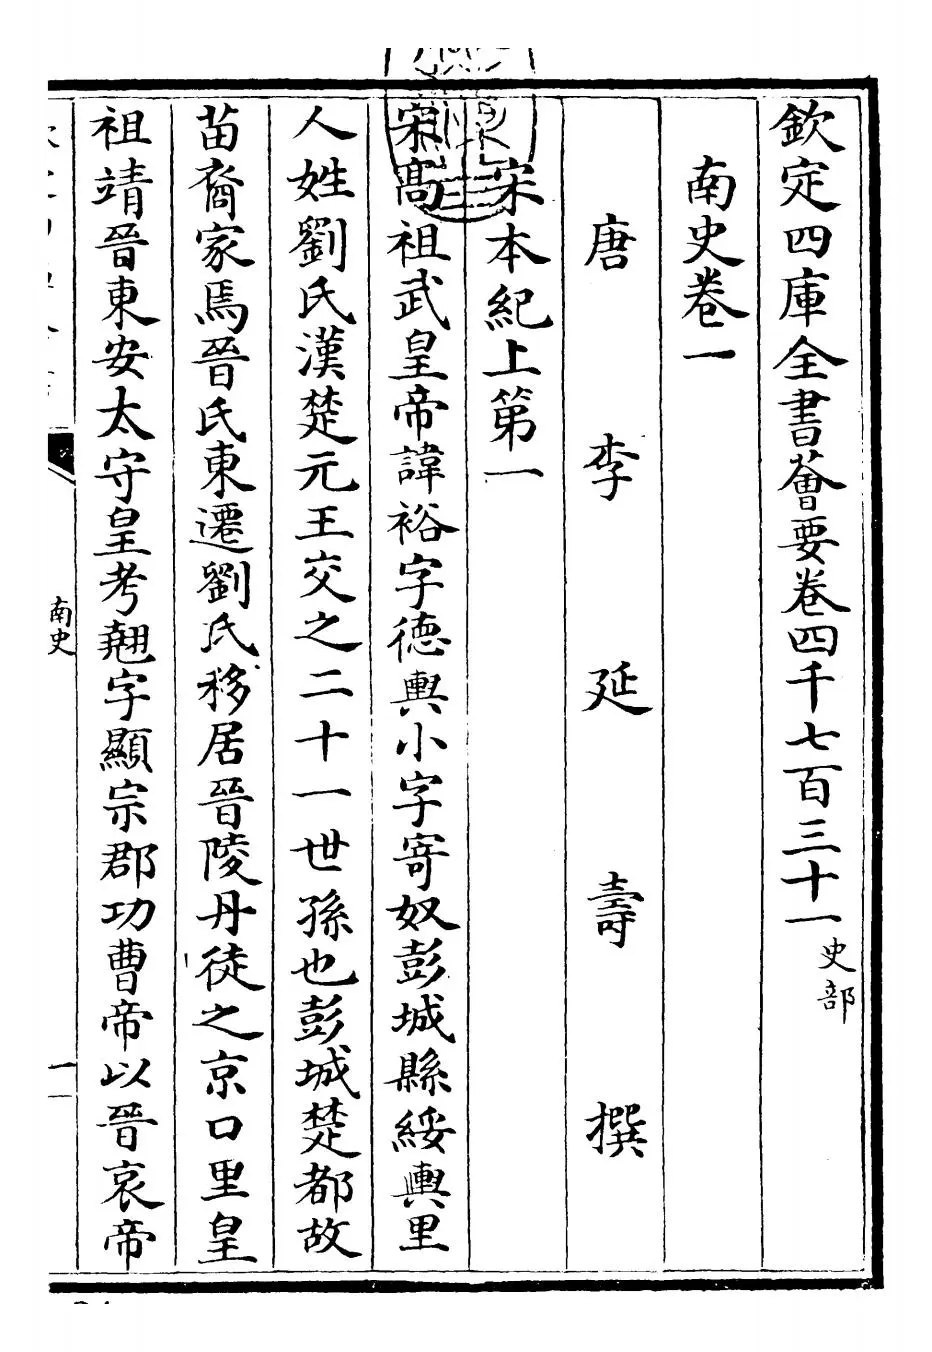 欽定四庫全書薈要卷四千七百三十一史部
南史卷一
唐李延壽撰
宋本紀上第一
宋髙祖武皇帝諱裕字德輿小字寄奴彭城縣綏輿里
人姓劉氏漢楚元王交之二十一世孫也彭城楚都故
苗裔家焉晉氏東遷劉氏移居晉陵丹徒之京口里皇
祖靖晉東安太守皇考翹字顯宗郡功曹帝以晉哀帝
南史
一